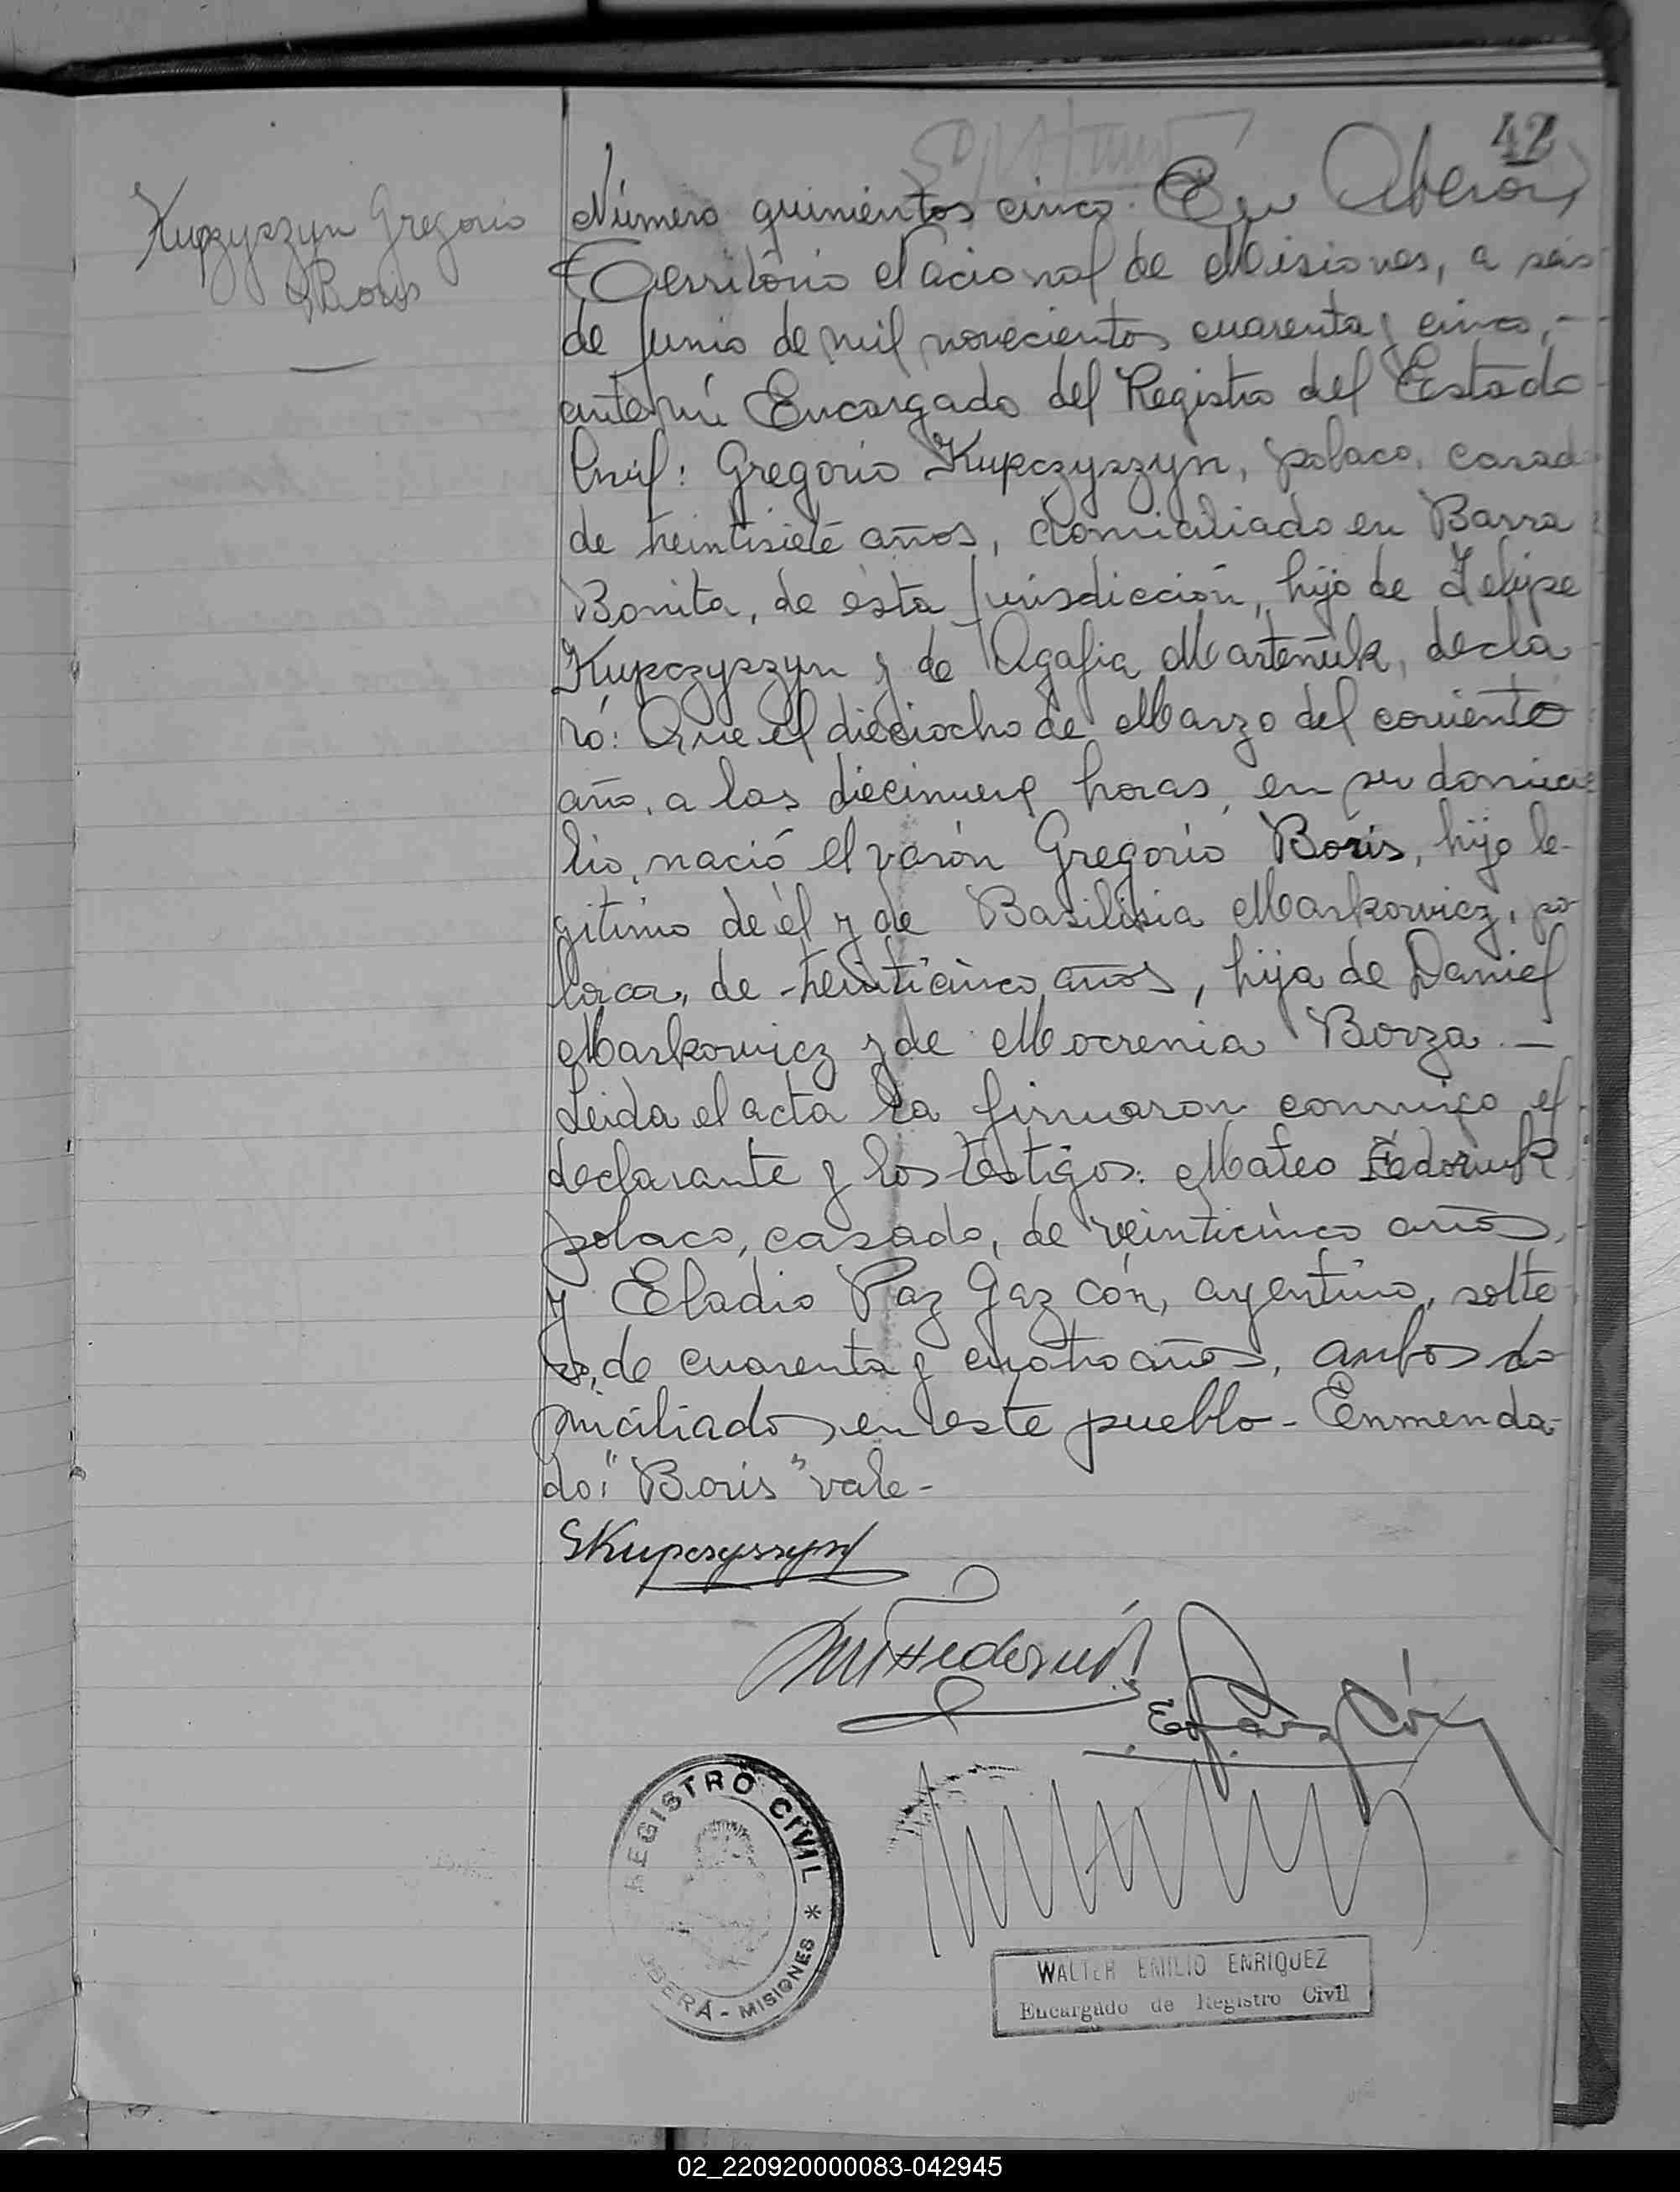 42
Kupczyszyn Gregorio
Boris
Número quinientos cinco. En Oberá,
Territorio Nacional de Misiones, a seis
de Junio de mil novecientos cuarenta y cinco,-
ante mí Encargado del Registro del Estado
Civil: Gregorio Kupczyszyn, polaco, casado
de treintisiete años, domiciliado en Barra
Bonita, de ésta Jurisdicción, hijo de Felipe
Kupczyszyn y de Agafia Marteñuk, decla
ró: Que el dieciocho de Marzo del corriente
año, a las diecinueve horas, en su domici
lio, nació el varón Gregorio Boris, hijo le-
gítimo de él y de Basilisia Markowicz, po
laca, de treinticinco años, hija de Daniel
Markowicz y de Mocrenia Borza. —
Leida el acta la firmaron conmigo el
declarante y los testigos: Mateo Fedoruk
polaco, casado, de veinticinco años,
y Eladio Paz Gez Cón, argentino, solte
ro, de cuarenta y cuatro años, ambos do
miciliados en este pueblo - Enmenda-
do: "Boris" vale -
GKupczyszyn
REGISTRO CIVIL *
OBERÁ - MISIONES
WALTER EMILIO ENRIQUEZ
Encargado de Registro Civil
02_220920000083-042945